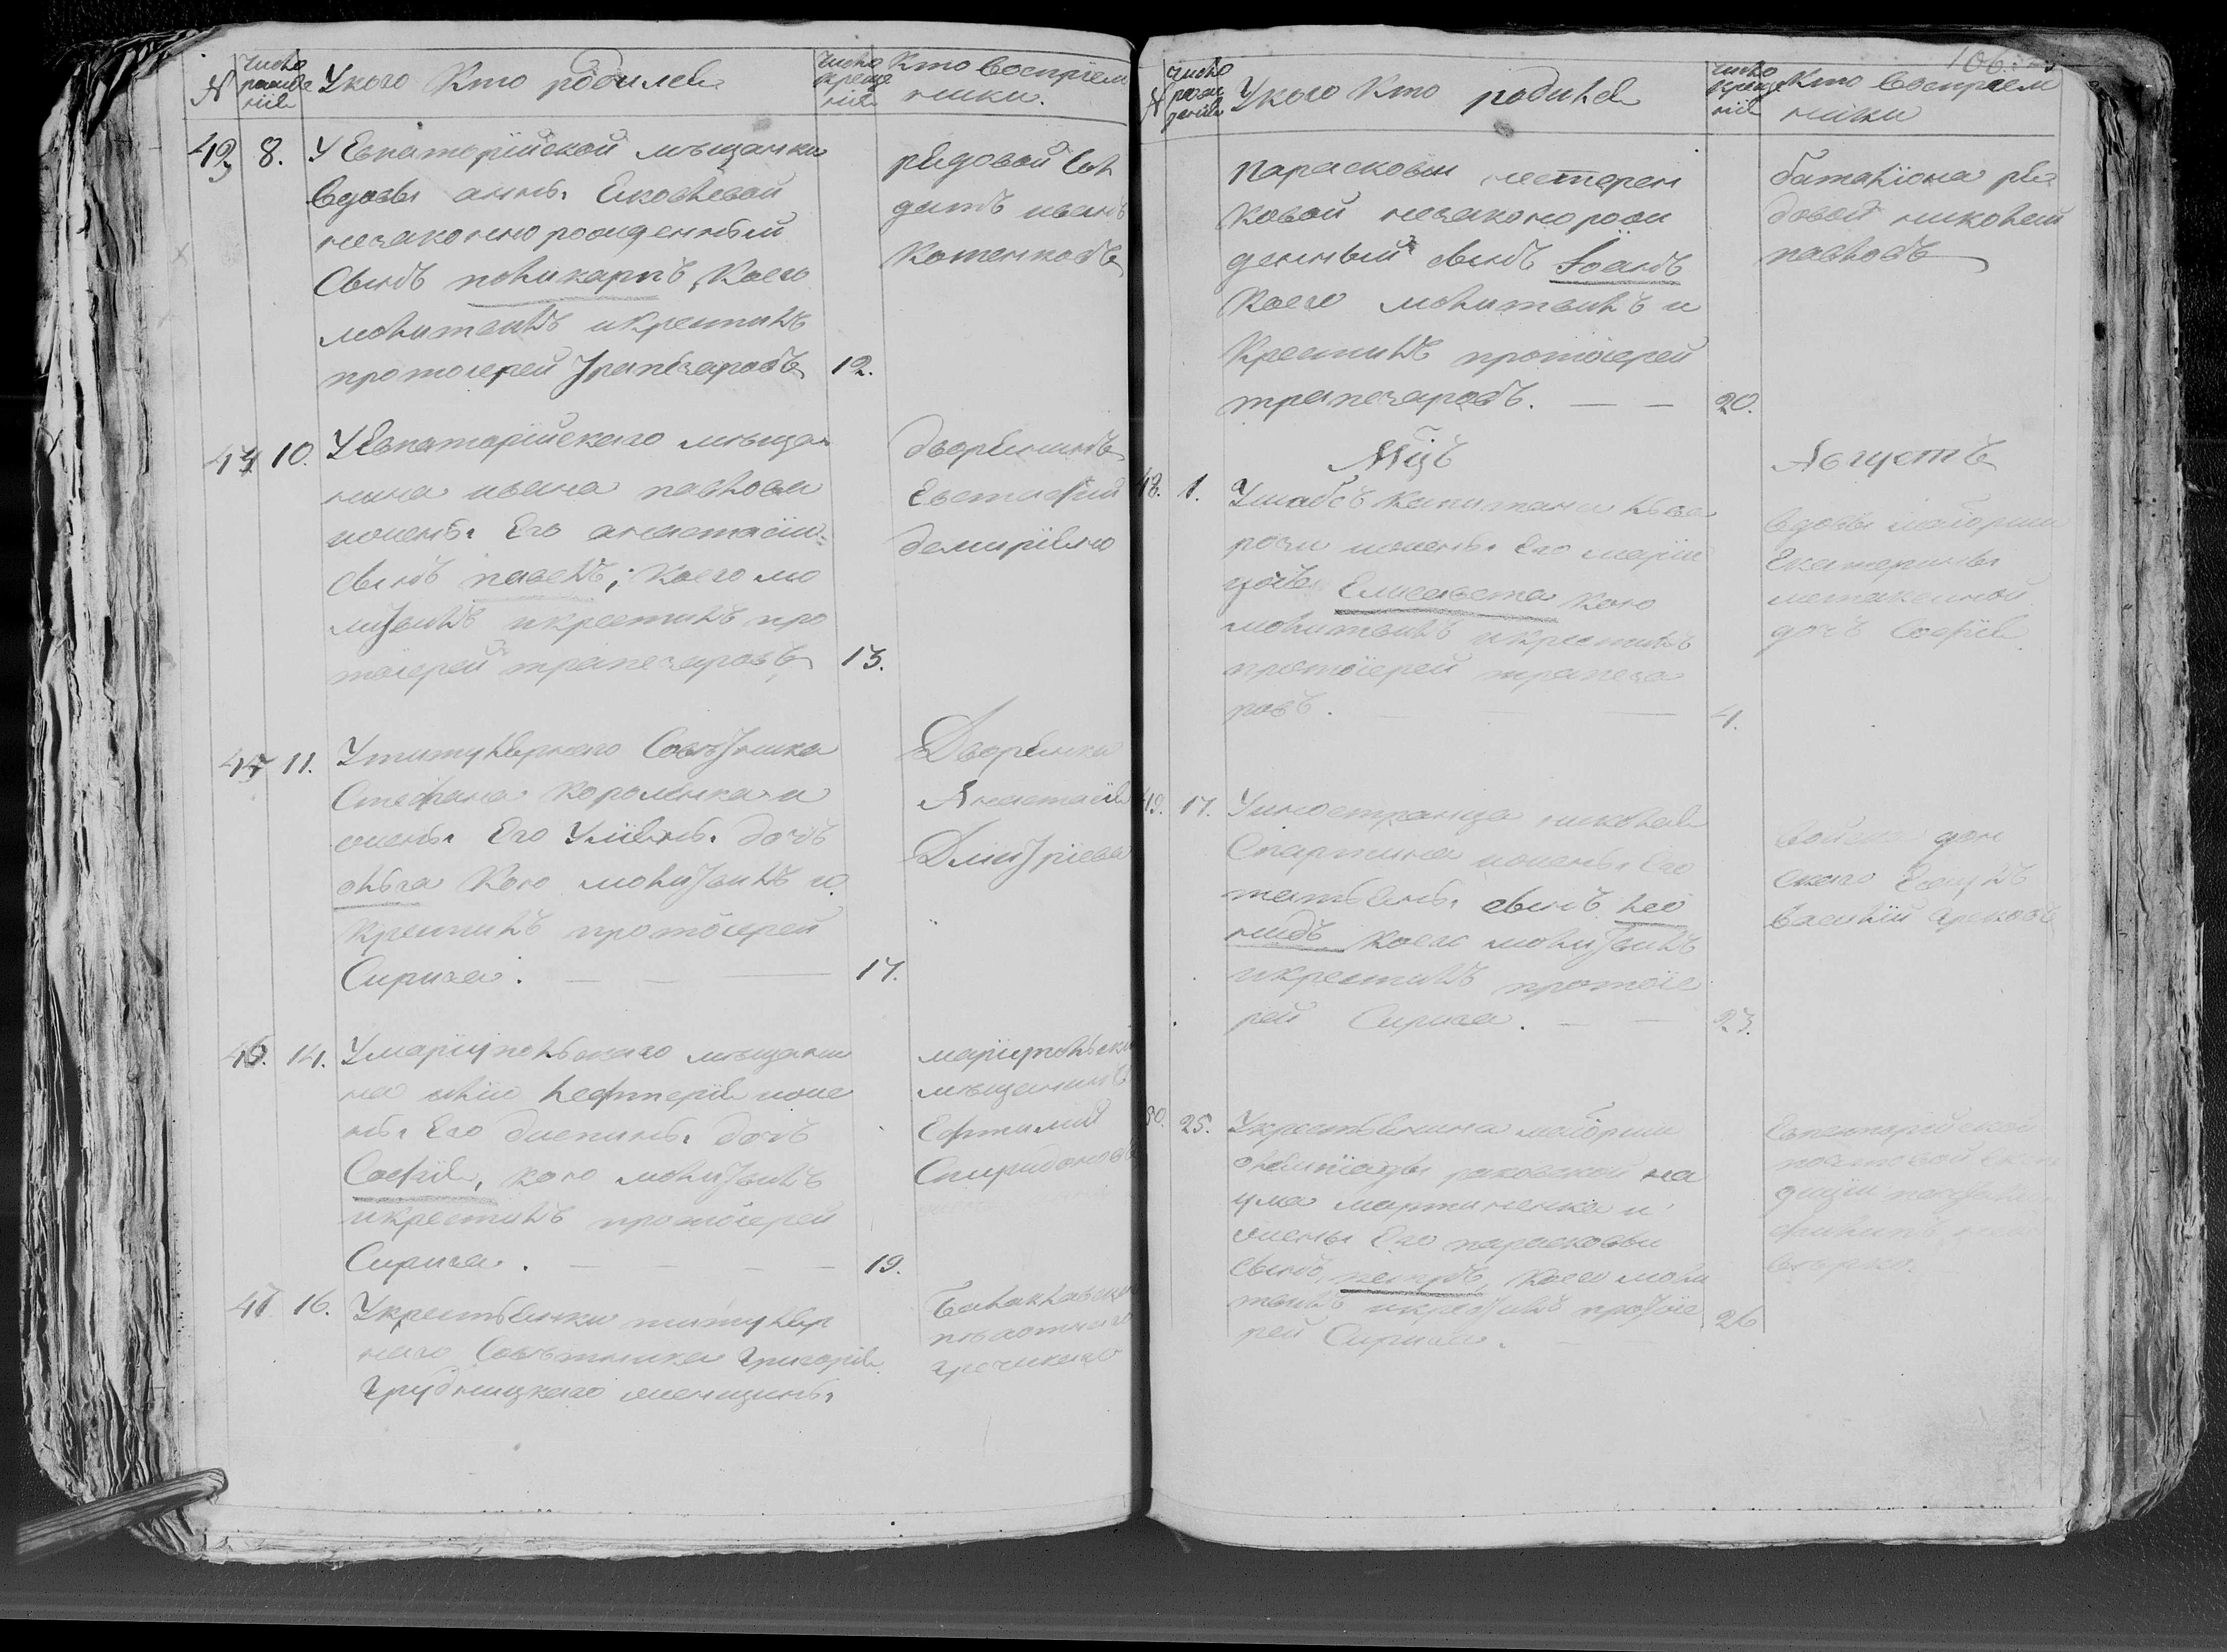 №
число рожденія
У кого Кто родился
число крещенія
Кто Воспріем
ники.
43 8. У Евпаторійской мѣщанки
вдовы анны Яковлевой
незаконно рожденный
Сынъ поликарпъ, Коего
молитвилъ икрестилъ
протоіерей Трапезаровъ 12.
рядовой сол
датъ иванъ
Котенковъ
44 10. У Евпаторійскаго мѣща
нина ивана павлова
ижены Его анастасіи
Сынъ павелъ; Коего мо
литвилъ икрестилъ про
тоіерей трапезаровъ 13.
дворянинъ
Евстафій
45 11. У титулярнаго Совѣтника
Стефана Королѣнка и
жены Его Уліяны дочь
ольга Кою молитвилъ и
Крестилъ протоіерей
Сирига. 17.
Дворянка
Анастасія
Дмитріева
46. 14. У маріупольскаго мѣщани
на иліи лефтерія ижe
ны Его дочь
Софія, кою молитвилъ
икрестилъ протоіерей
Сирига. 19.
маріупольскій
мѣщанинъ
Ефтимій
Спиридоновъ
47 16. У крестьянки титуляр
наго Совѣтника григорія
грудницкаго женщины
Балаклавскаго
пѣхотнаго
греческаго
106
№
число рожденія
У кого Кто родился
число крещенія
Кто Воспріем
ники
параскевы нестерен
ковой незаконорож
денный сынъ Іоанъ
Коего молитвилъ и
Крестилъ протоіерей
трапезаровъ. 20.
баталіона ря
довой николай
павловъ
Мцъ Августъ
48. 1. У штабсъ Капитана
ижены Его маріи
дочь Елисавета Кою
молитвилъ икрестилъ
протоіерей трапеза
ровъ. 4.
вдовы маіорши
Екатерины
дочь Софія
49. 17. У иностранца николая
Спартина ижены Его
татьяны сынъ лео
нидъ Коего молитвилъ
икрестилъ протоіе
рей Сирига. 23.
войска дон
скаго Есаулъ
василій
50. 25. У крестьянина маіорши
олимпіады раковской на
ума мартиненка и
жены Его парасковьи
сынъ петръ, Коего моли
твилъ икрестилъ протоіе
рей Сирига. 26
Евпаторійской
почтовой Экспе
диціи
филипъ